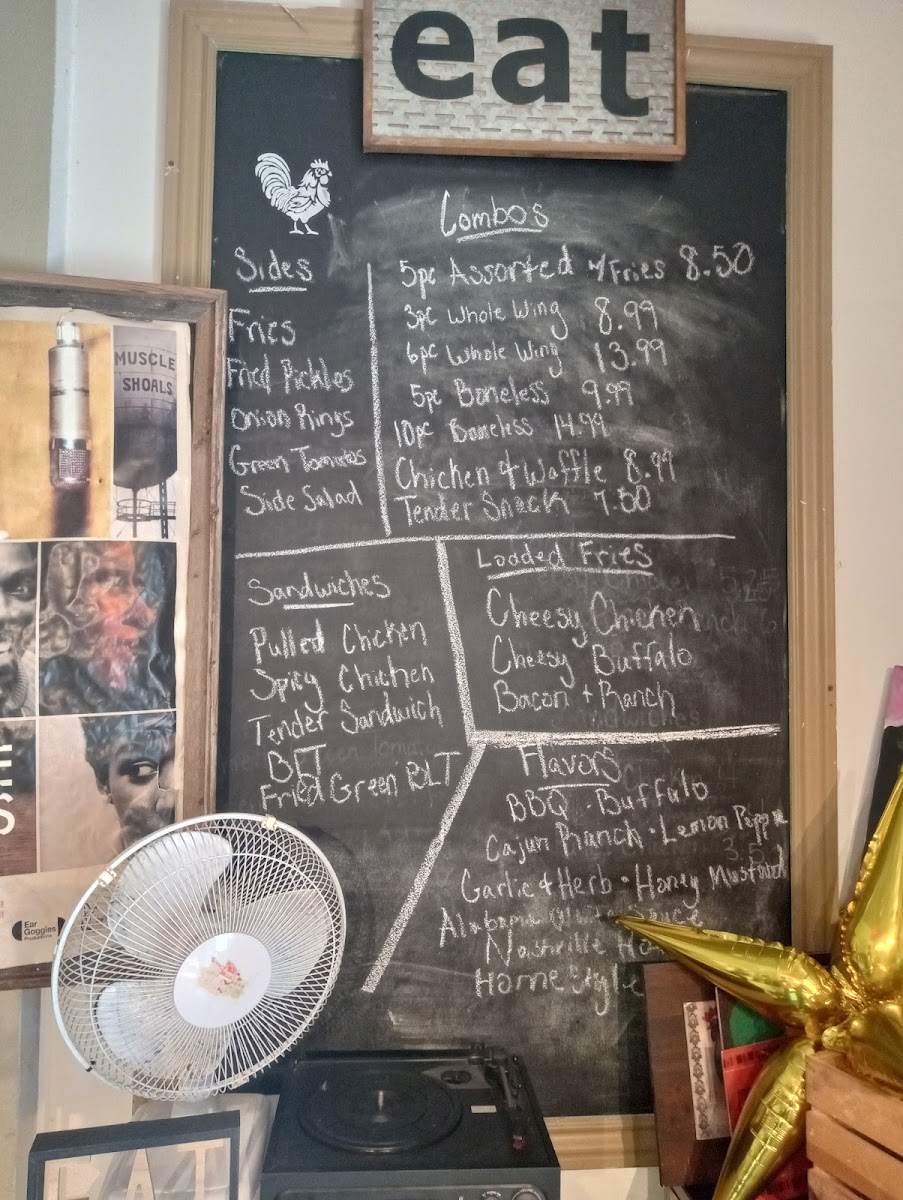 eat
Combo's
5pc Assorted w/Fries 8.50
3pc Whole Wing 8.99
6pc Whole Wing 13.99
5pc Boneless 9.99
10pc Boneless 14.99
Chicken & Waffle 8.99
Tender Snack 7.50
Sides
Fries
Fried Pickles
Onion Rings
Green Tomatoes
Side Salad
Sandwiches
Pulled Chicken
Spicy Chicken
Tender Sandwich
BLT
Fried Green BLT
Loaded Fries
Cheesy Chicken
Cheesy Buffalo
Bacon + Ranch
Flavors
BBQ Buffalo
Cajun Ranch • Lemon Pepper
Garlic & Herb • Honey Mustard
Alabama White Sauce
Nashville
Home Style
MUSCLE
SHOALS
Ear
Goggles
Productions
EAT